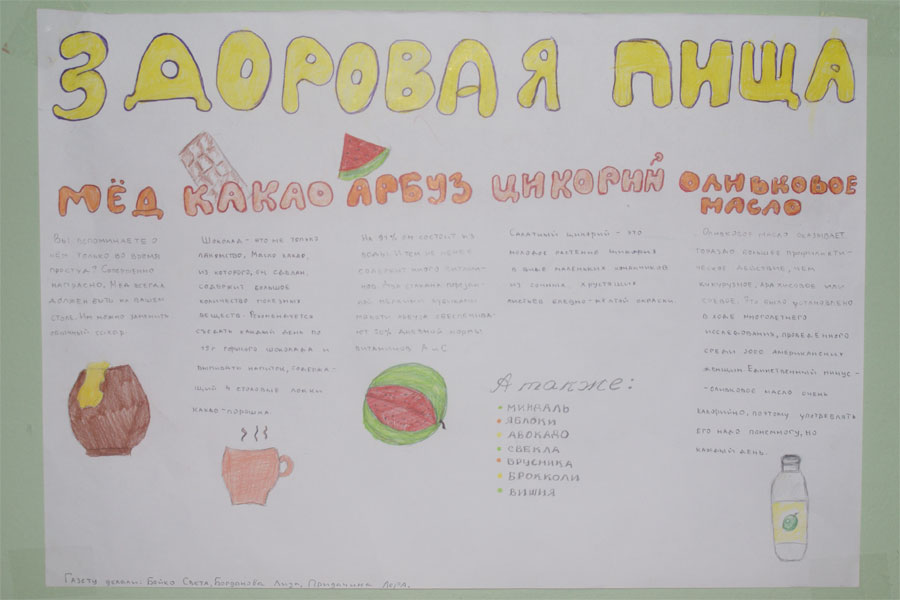 ЗДОРОВАЯ ПИЩА
МЁД
Вы вспоминаете о
нём только во время
простуд? Совершенно
напрасно, мёд всегда
должен быть на вашем
столе. Им можно заменить
обычный сахар.
КАКАО
Шоколад - это не только
лакомство. Масло какао,
из которого он сделан,
содержит большое
количество полезных
веществ. Рекомендуется
съедать каждый день по
15г горького шоколада и
выпивать напиток, содержа-
щий 4 столовые ложки
какао-порошка.
АРБУЗ
На 94% он состоит из
воды. И тем не менее
содержит много витами-
нов. Два стакана порезан-
ной мелкими кусочками
мякоти арбуза обеспечива-
ют 25% дневной нормы
витаминов А и С.
ЦИКОРИЙ
Салатный цикорий - это
молодое растение цикория
в виде маленьких кочанчиков
из сочных, хрустящих
листьев бледно-жёлтой окраски.
А также:
МИНДАЛЬ
ЯБЛОКИ
АВОКАДО
СВЕКЛА
БРУСНИКА
БРОККОЛИ
ВИШНЯ
ОЛИВЬКОВОЕ
МАСЛО
Оливковое масло оказывает
гораздо большее профилакти-
ческое действие, чем
кукурузное, арахисовое или
соевое. Это было установлено
в ходе многолетнего
исследования, проведённого
среди 3000 американских
женщин. Единственный минус -
- оливковое масло очень
калорийно, поэтому употреблять
его надо понемногу, но
каждый день.
Газету делали: Бойко Света, Богданова Лиза, Приданина Лера.